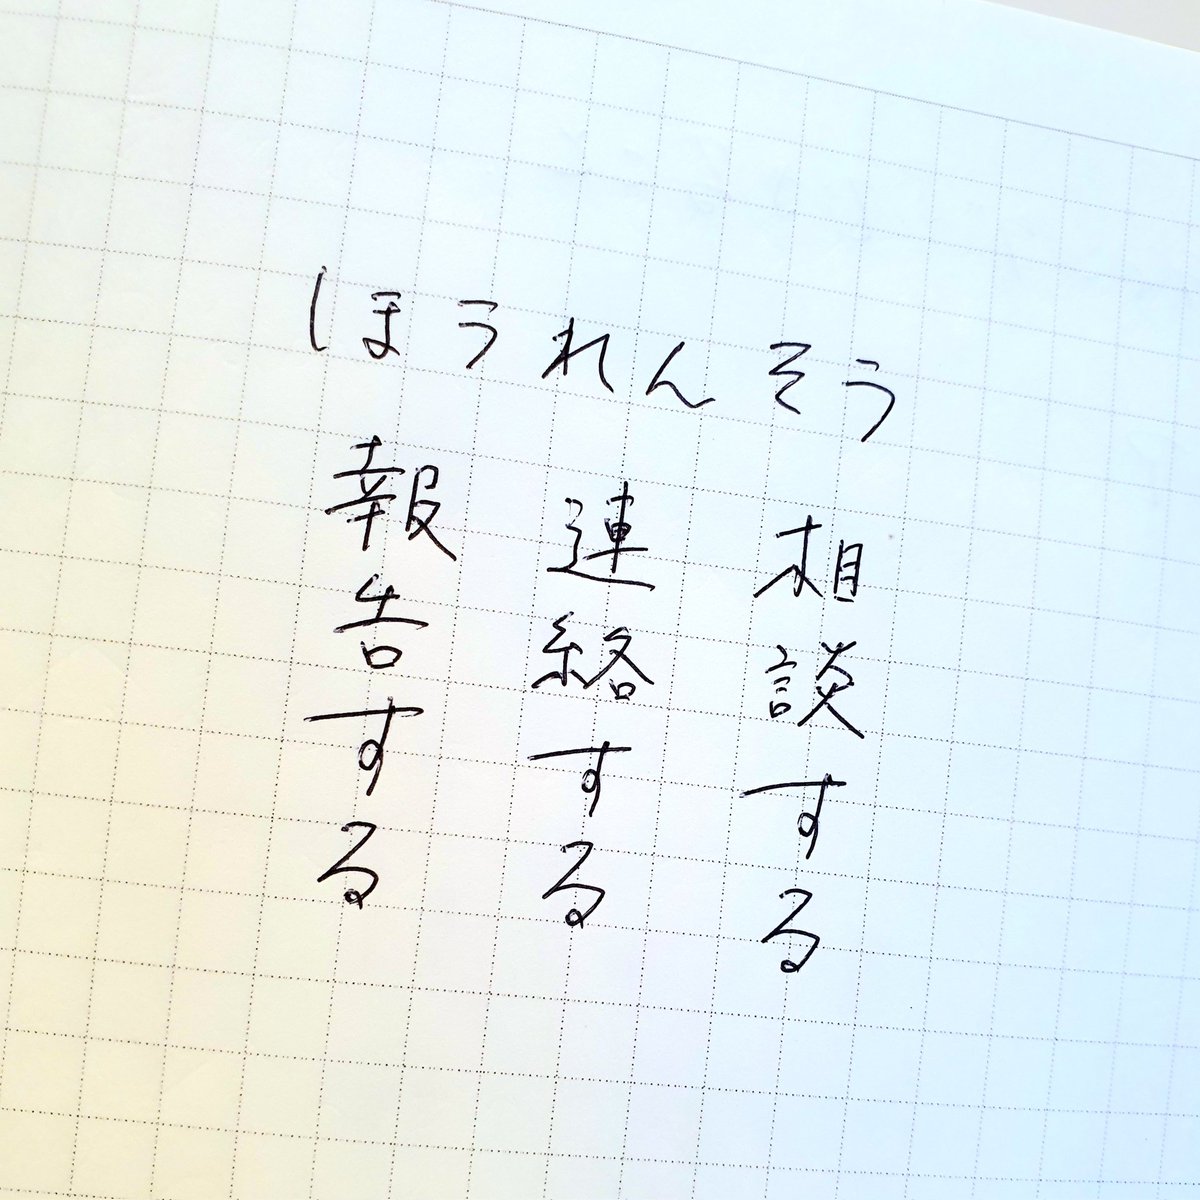 ほうれんそう
報告する
連絡する
相談する